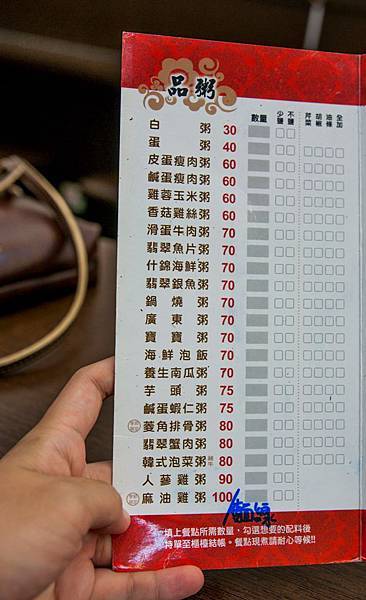 品粥
數量 少鹽 不鹽 芹菜 胡椒 油條 全加
白粥 30
蛋粥 40
皮蛋瘦肉粥 60
鹹蛋瘦肉粥 60
雞蓉玉米粥 60
香菇雞絲粥 60
滑蛋牛肉粥 70
翡翠魚片粥 70
什錦海鮮粥 70
翡翠銀魚粥 70
鍋燒粥 70
廣東粥 70
寶寶粥 70
海鮮泡飯 70
養生南瓜粥 70
芋頭粥 75
鹹蛋蝦仁粥 75
菱角排骨粥 80
翡翠蟹肉粥 80
韓式泡菜粥 80
人蔘雞粥 90
麻油雞粥 100
麵線
填上餐點所需數量，勾選想要的配料後
持單至櫃檯結帳。餐點現煮請耐心等候!!